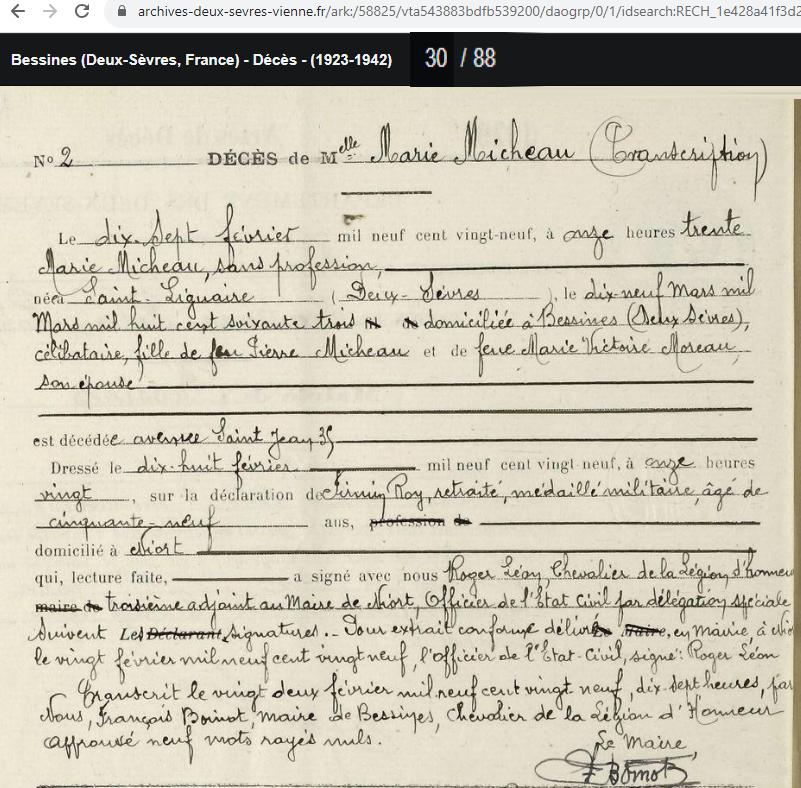 archives-deux-sevres-vienne.fr/ark:/58825/vta543883bdfb539200/daogrp/0/1/idsearch:RECH_1e428a41f3d2
Bessines (Deux-Sèvres, France) - Décès - (1923-1942) 30 / 88
No 2 DÉCÈS de Melle Marie Micheau (Transcription)
Le dix-sept février mil neuf cent vingt-neuf, à onze heures trente
Marie Micheau, sans profession,
née à Saint-Liguaire (Deux-Sèvres), le dix-neuf Mars mil
Mars mil huit cent soixante trois domiciliée à Bessines (Deux Sèvres),
célibataire, fille de feu Pierre Micheau et de feue Marie Victoire Moreau,
son épouse
est décédée avenue Saint Jean 35
Dressé le dix-huit février mil neuf cent vingt-neuf, à onze heures
vingt, sur la déclaration de Firmin Roy, retraité, médaillé militaire, âgé de
cinquante-neuf ans, profession de
domicilié à Niort
qui, lecture faite, a signé avec nous Roger Léon, Chevalier de la Légion d'honneur
maire de troisième adjoint au Maire de Niort, Officier de l'Etat Civil par délégation spéciale
Suivent Les Déclarant, signatures.. Pour extrait conforme délivré Maire, en Mairie, à Niort
le vingt février mil neuf cent vingt neuf, l'officier de l'Etat-Civil, signé: Roger Léon
Transcrit le vingt deux février mil neuf cent vingt neuf, dix-sept heures, par
Nous, François Boinot, maire de Bessines, Chevalier de la Légion d'Honneur
approuvé neuf mots rayés nuls.
Le Maire,
F Boinot